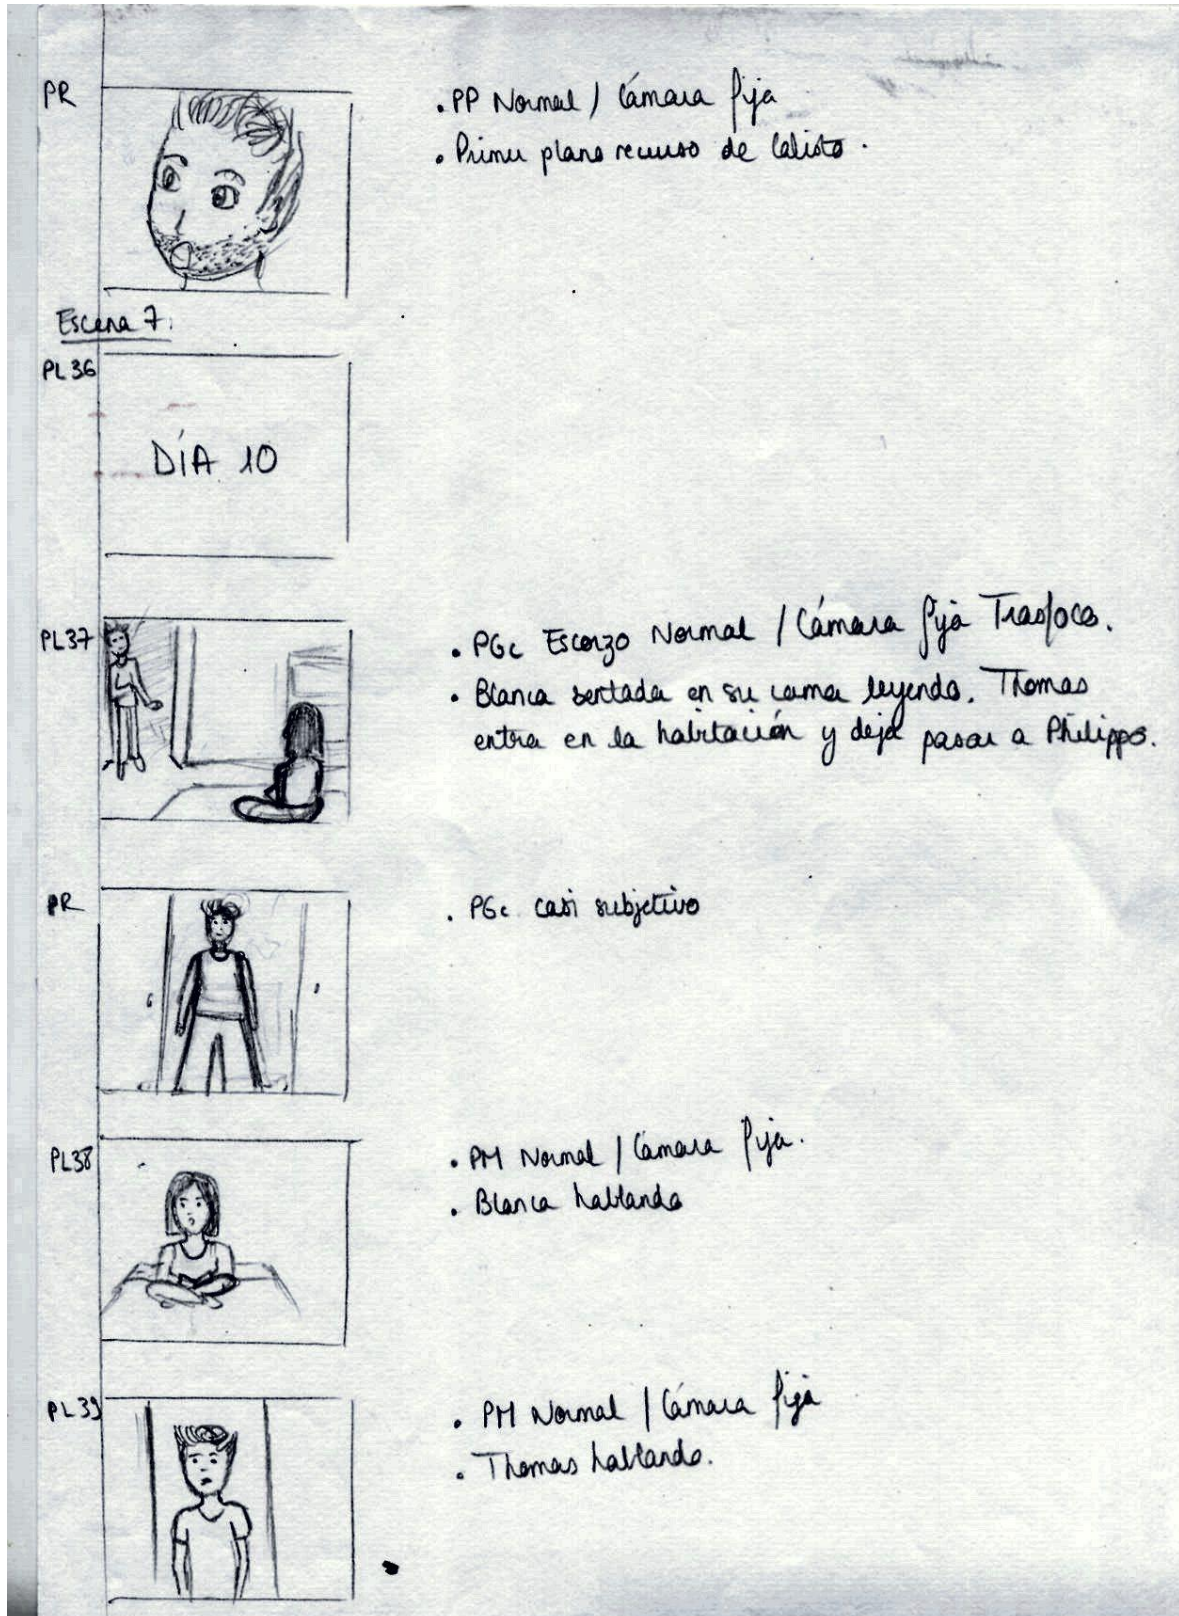 PR
. PP Normal / Cámara fija
. Primer plano recurso de Calisto.
Escena 7:
PL36
DÍA 10
PL37
. PGc Escorzo Normal / Cámara fija Trasfoco.
. Blanca sentada en su cama leyendo. Thomas
entra en la habitación y deja pasar a Philippo.
PR
. PGc casi subjetivo
PL38
. PM Normal / Cámara fija.
. Blanca hablando
PL39
. PM Normal / Cámara fija
. Thomas hablando.